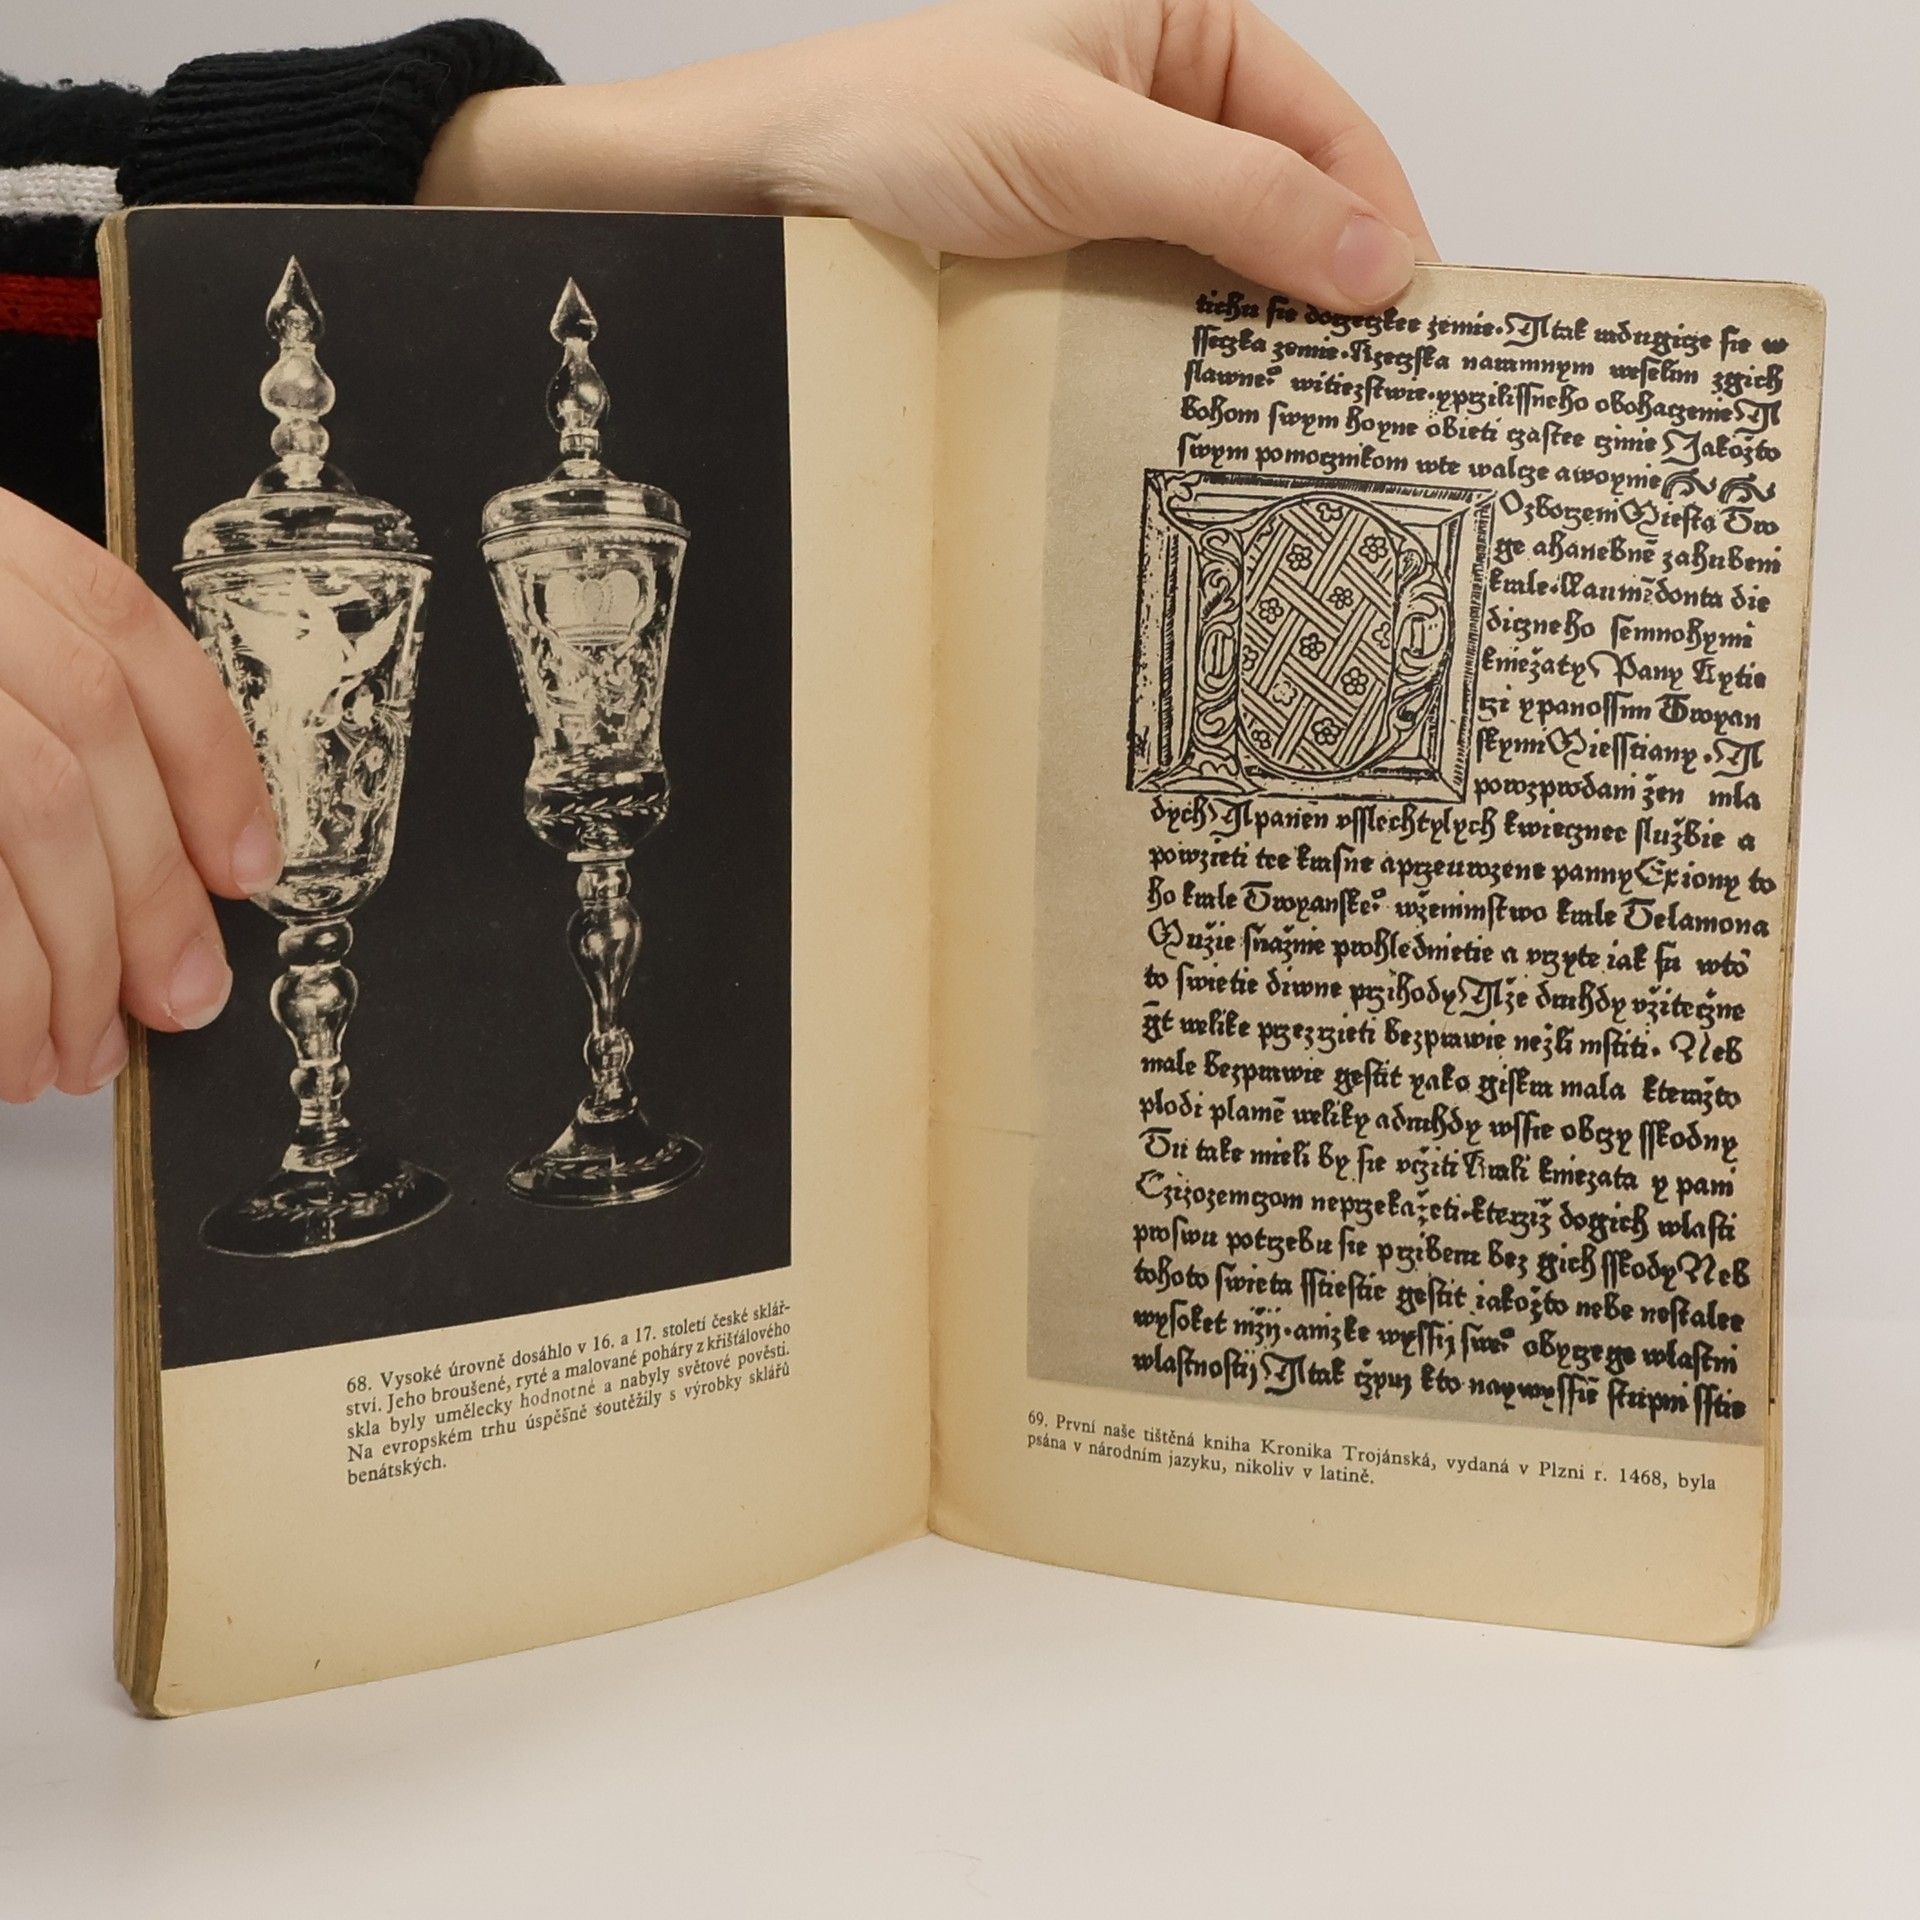 68. Vysoké úrovně dosáhlo v 16. a 17. století české sklář-
ství. Jeho broušené, ryté a malované poháry z křišťálového
skla byly umělecky hodnotné a nabyly světové pověsti.
Na evropském trhu úspěšně soutěžily s výrobky sklářů
benátských.
tichu sie doczeczkee zemie. A tak nawdugicze sie w
sseczka zemie. Rzeczska narumnym weselim zgich
slawneo witiezstwie. yprzilissneho obohaczenie A
bohom swym hoyne obieti czastee czinie Jakožto
swym pomocznikom wte walcze awoynie
Ozborzem Miesta Tro
ge ahanebnē zahubeni
krale. Laumēdonta die
diczneho semnohymi
kniežaty Pany Rytie
rzi ypanossimi Troyan
skymi Miesstiany. A
porozprodani žen mla
dych A panen vsslechtylych kwiecznee službie a
powzieti tee krasne aprzeurozene panny Exiony to
ho krale Troyanskeo wženinstwo krale Telamona
Mužie snažnie prohlednietie a vrzyte iak su wtō
to swietie diwne przihody A že druhdy vžiteczne
gt welike przezrzieti bezprawie nežli mstiti. Neb
male bezprawie gestit yako giskra mala kteražto
plodi plamē weliky adruhdy wssie obczy sskodny
Tu take mieli by sie vcziti Krali kniezata y pani
Czizozemczom neprzekažeti. kterziž dogich wlasti
proswu potrzebu sie prziberu bez gich sskody Neb
tohoto swieta sstiestie gestit iakožto nebe nestalee
wysoket nižij. anizke wyssij sweo obyczege wlastni
wlastnostij A tak czym kto naywyssiē stupni sstie
69. První naše tištěná kniha Kronika Trojánská, vydaná v Plzni r. 1468, byla
psána v národním jazyku, nikoliv v latině.